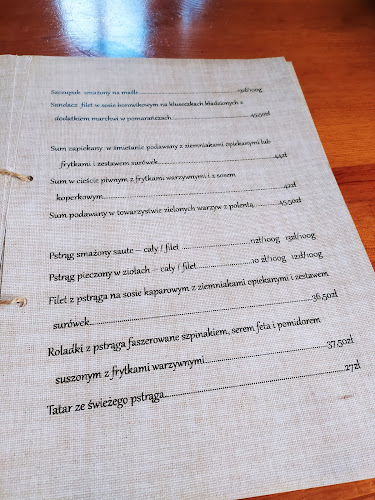 Szczupak smażony na maśle..........................................13zł/100g
Sandacz filet w sosie borowikowym na kluseczkach kładzionych z
dodatkiem marchwi w pomarańczach..........................................45,50zł
Sum zapiekany w śmietanie podawany z ziemniakami opiekanymi lub
frytkami i zestawem surówek..........................................44zł
Sum w cieście piwnym z frytkami warzywnymi i z sosem
koperkowym..........................................42zł
Sum podawany w towarzystwie zielonych warzyw z polentą..............45,50zł
Pstrąg smażony saute – cały / filet ....................11zł/100g 13zł/100g
Pstrąg pieczony w ziołach – cały / filet ....................10 zł/100g 12zł/100g
Filet z pstrąga na sosie kaparowym z ziemniakami opiekanymi i zestawem
surówek..........................................36,50zł
Roladki z pstrąga faszerowane szpinakiem, serem feta i pomidorem
suszonym z frytkami warzywnymi..........................................37,50zł
Tatar ze świeżego pstrąga..........................................27zł